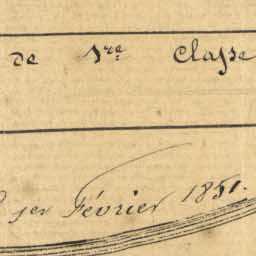 de 1re Classe
1er Février 1851.